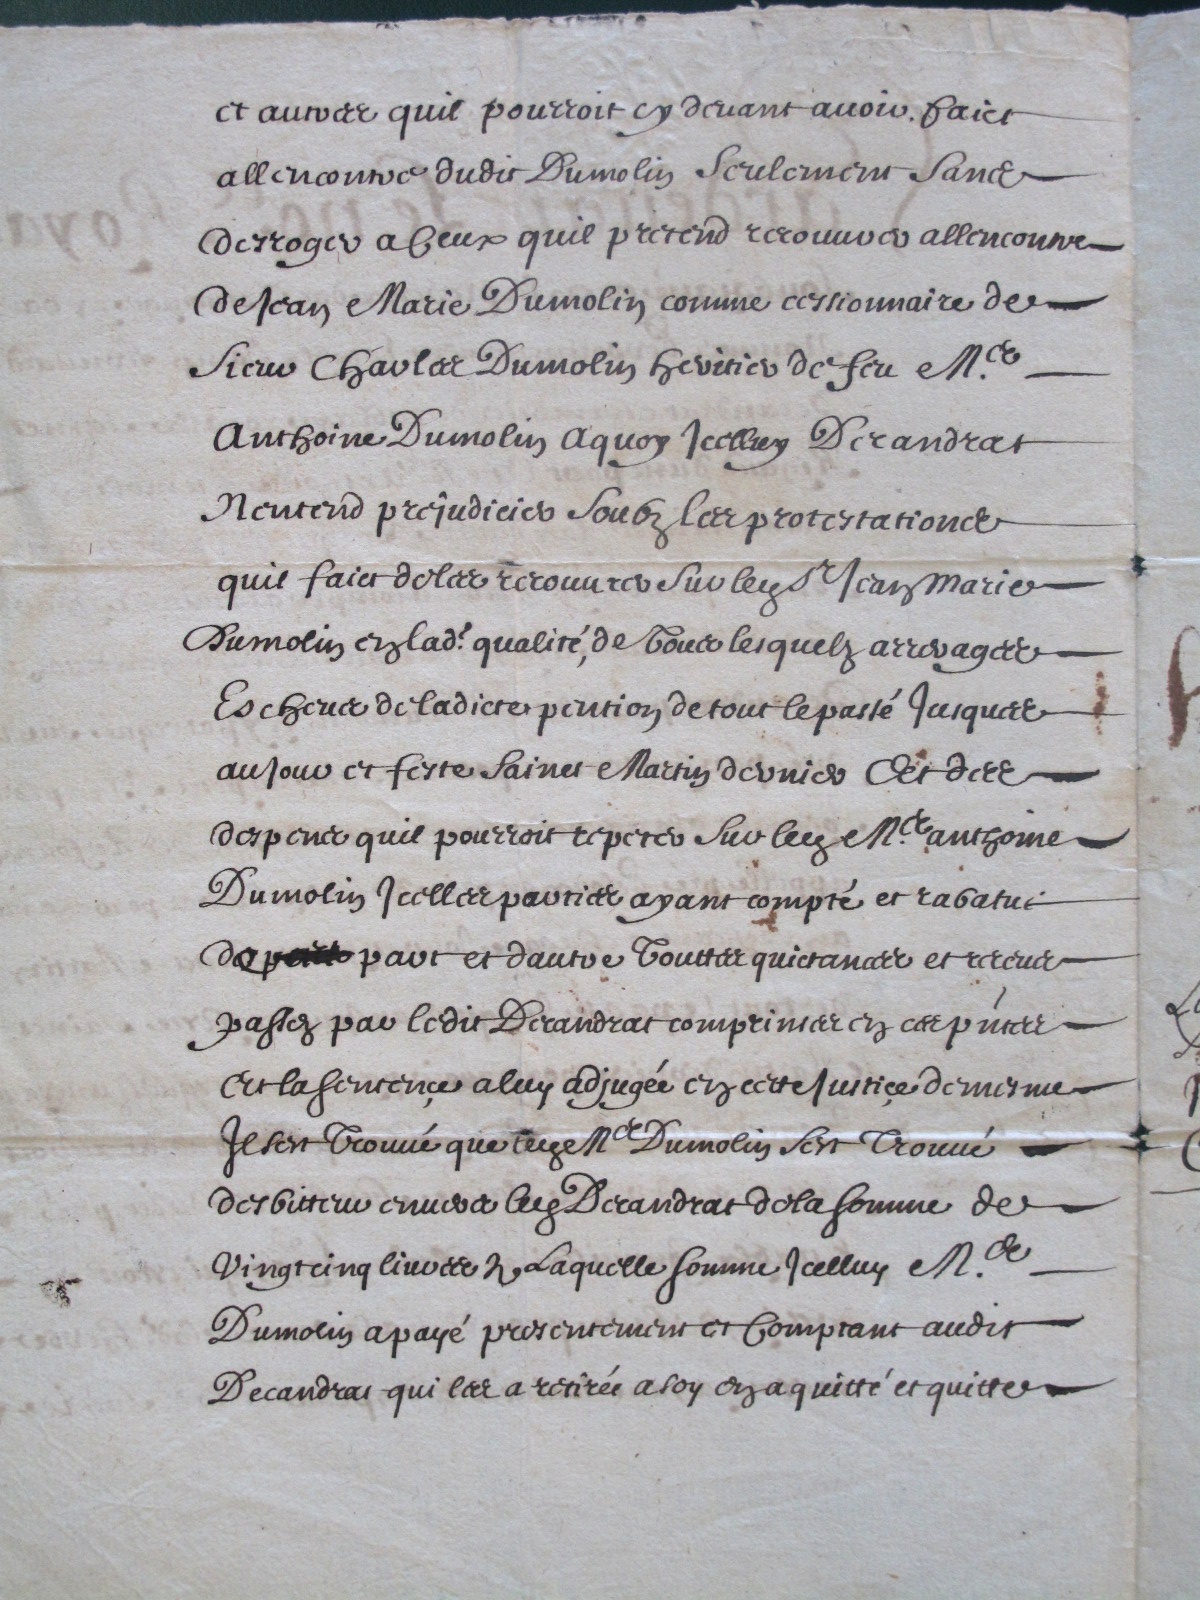 et autres quil pourroit cy devant avoir faict
allencontre dudit Dumolin Seulement Sans
desroger a Ceux quil pretend recouvrer allencontre
de Jean Marie Dumolin comme cessionnaire de
Sieur Charles Dumolin heritier de feu M.re
Anthoine Dumolin Aquoy Jcelluy Decandrat
Nentend prejudicier Soubz les protestations
quil faict de les recouvrer Sur ley Sr Jean Marie
Dumolin en lad.e qualité, de Tous lesquelz arrerages
Escheus de ladicte pention de tout le passé Jusques
au Jour et feste Sainct Martin dernier Et des
despens quil pourroit repeter Sur ley M.re anthoine
Dumolin Jcelles parties ayant compté et rabatut
de part et dautre Touttes quictances et receus
passez par ledit Decandrat comprinses en ces p̃ntes
Et la sentençe a luy adjugée en cette Justiçe de mesme
Jl sest Trouvé que ley Mre Dumolin Sest Trouvé
desbitteur envers ley Decandrat de la somme de
Vingt cinq livres Laquelle somme Jcelluy M.re
Dumolin a payé presentement et Comptant audit
Decandrat qui les a retirée a soy en a quitté et quitte